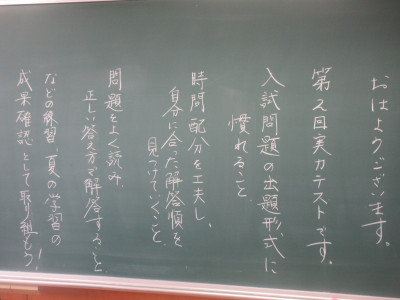 おはようございます。
第2回実力テストです。
入試問題の出題形式に
慣れること
時間配分を工夫し、
自分に合った解答順を
見つけていくこと
問題をよく読み、
正しい答え方で解答すること
などの練習、夏の学習の
成果確認として取り組もう！